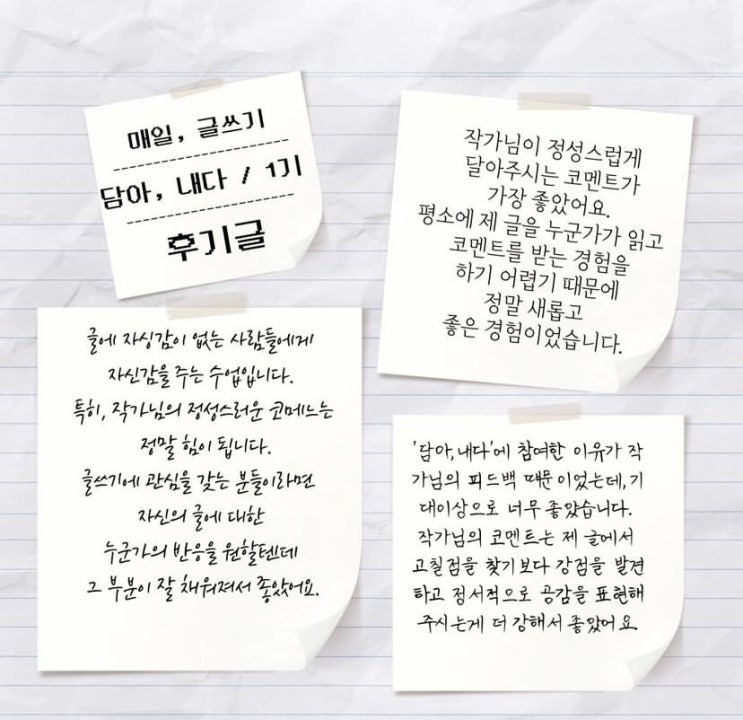 매일, 글쓰기
담아, 내다 / 1기
후기글
작가님이 정성스럽게
달아주시는 코멘트가
가장 좋았어요.
평소에 제 글을 누군가가 읽고
코멘트를 받는 경험을
하기 어렵기 때문에
정말 새롭고
좋은 경험이었습니다.
글에 자싱감이 없는 사람들에게
자신감을 주는 수업입니다.
특히, 작가님의 정성스러운 코메느는
정말 힘이 됩니다.
글쓰기에 관심을 갖는 분들이라면
자신의 글에 대한
누군가의 반응을 원할텐데
그 부분이 잘 채워져서 좋았어요.
'담아,내다'에 참여한 이유가 작
가님의 피드백 때문이었는데, 기
대이상으로 너무 좋았습니다.
작가님의 코멘트는 제 글에서
고칠점을 찾기보다 강점을 발견
하고 정서적으로 공감을 표현해
주시는게 더 강해서 좋았어요.